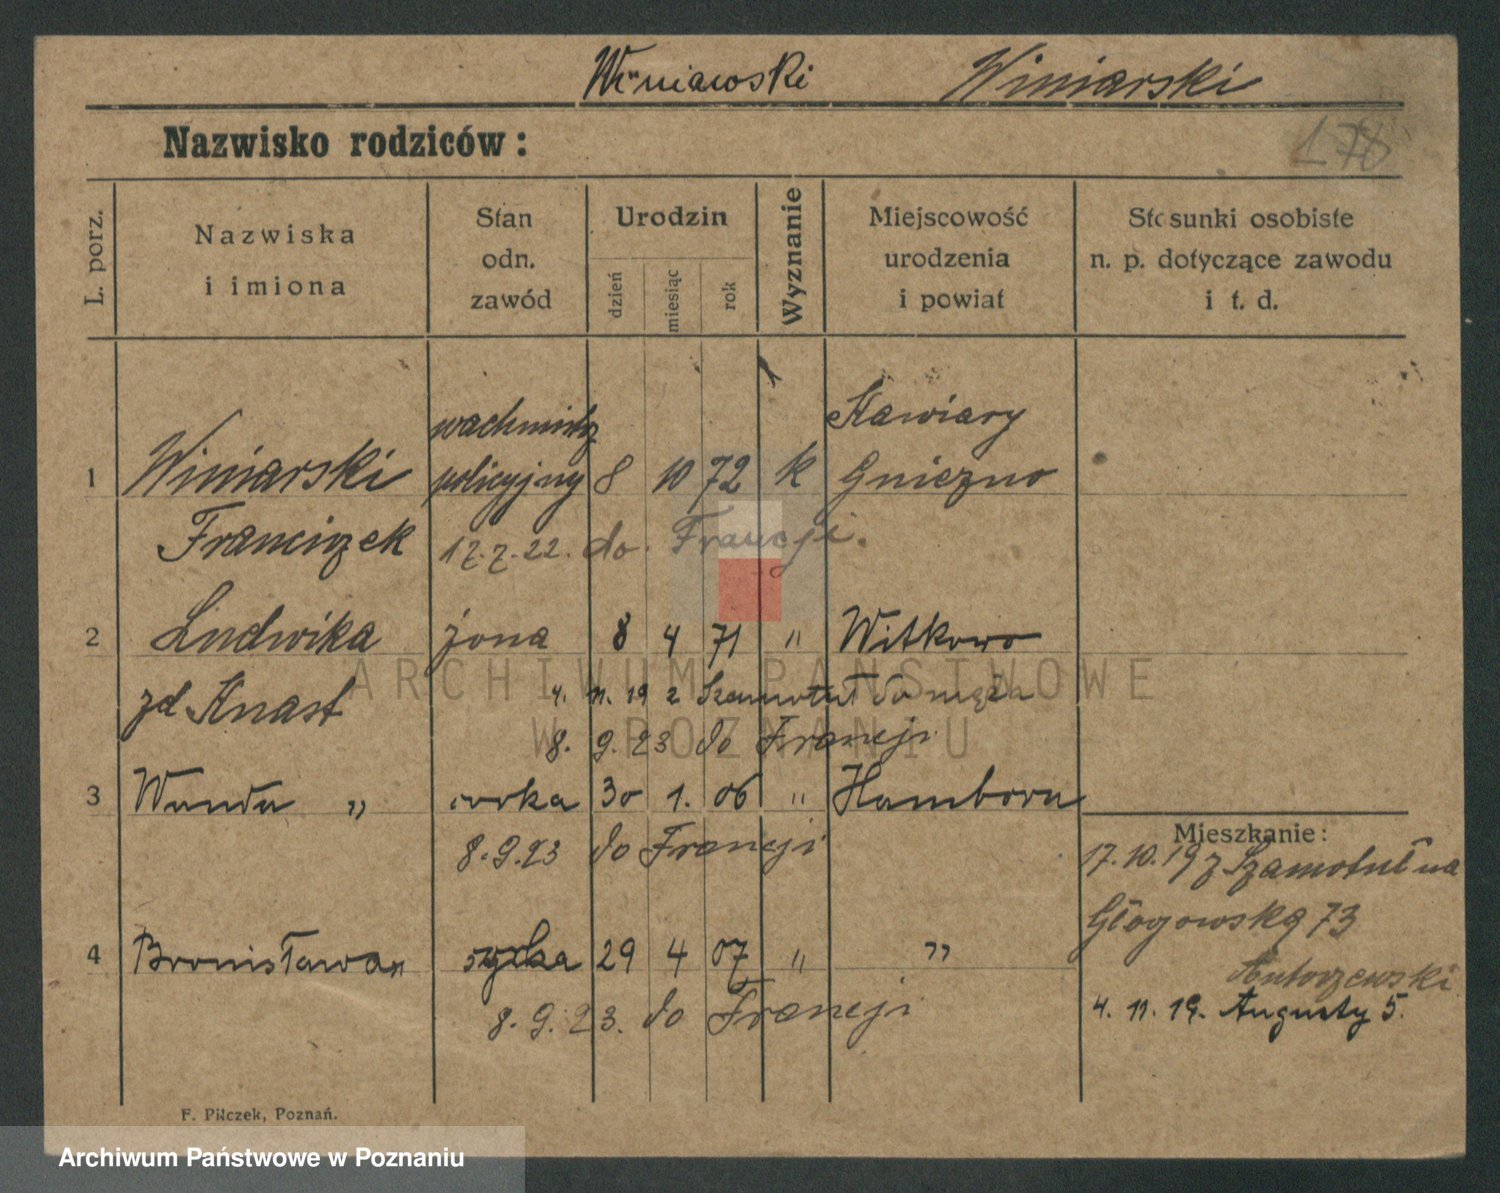 Winiarski Winiarski
Nazwisko rodziców:
L. porz.
Nazwiska
i imiona
Stan
odn.
zawód
Urodzin
dzień
miesiąc
rok
Wyznanie
Miejscowość
urodzenia
i powiat
Stosunki osobiste
n. p. dotyczące zawodu
i t. d.
wachmistrz Kawiary
1 Winiarski policyjny 8 10 72 k Gniezno
Franciszek 17.7.22. do Francji.
2 Ludwika żona 8 4 71 " Witkowo
zd Knast 4. 11. 19 z Szamotuł do męża
8. 9. 23 do Francji
3 Wanda " córka 30 1. 06 " Hamborn
8.9.23 do Francji
Mieszkanie:
17.10.19 z Szamotuł na
Głogowską 73
4 Bronisława " 29 4 07 " "
8. 9. 23. do Francji
4. 11. 19. Augusty 5.
F. Pilczek, Poznań.
ARCHIWUM PAŃSTWOWE
W POZNANIU
Archiwum Państwowe w Poznaniu